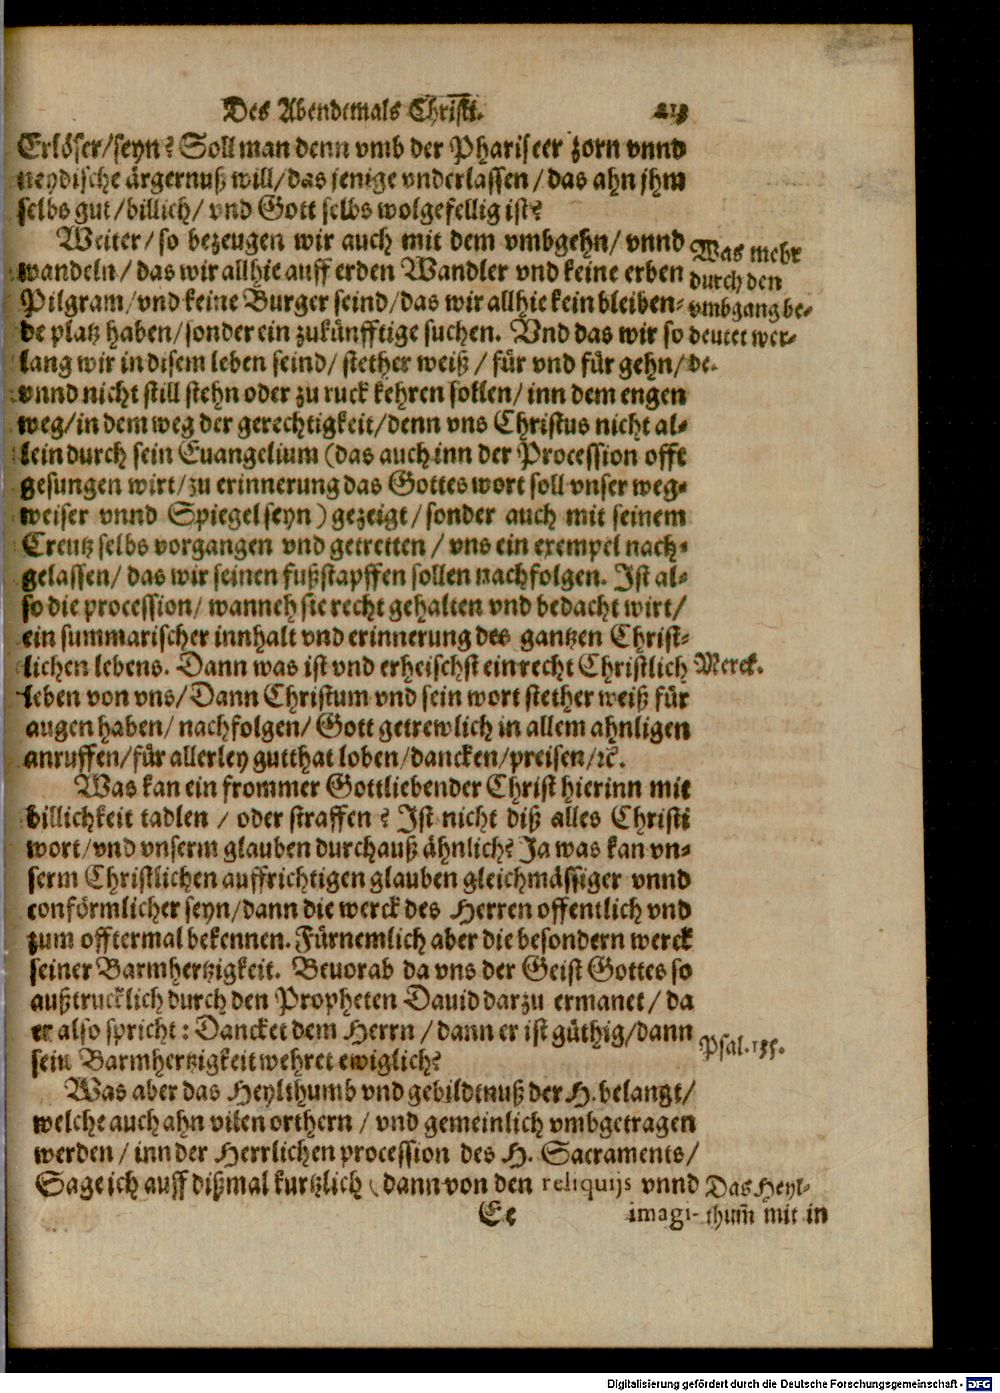 Des Abendemals Christi.
Erlöser/seyn? Soll man denn vmb der Phariseer zorn vnnd
neydische ärgernuß will/das jenige vnderlassen/das ahn jhm
selbs gut/billich/vnd Gott selbs wolgefellig ist?
Weiter/so bezeugen wir auch mit dem vmbgehn/vnnd
wandeln/das wir allhie auff erden Wandler vnd keine erben
Pilgram/vnd keine Burger seind/das wir allhie kein bleiben-
de platz haben/sonder ein zukünfftige suchen. Vnd das wir so
lang wir in disem leben seind/stether weiß/für vnd für gehn/
vnnd nicht still stehn oder zu ruck kehren sollen/inn dem engen
weg/in dem weg der gerechtigkeit/denn vns Christus nicht al-
lein durch sein Euangelium (das auch inn der Procession offt
gesungen wirt/zu erinnerung das Gottes wort soll vnser weg-
weiser vnnd Spiegel seyn) gezeigt/sonder auch mit seinem
Creutz selbs vorgangen vnd getretten/vns ein exempel nach-
gelassen/das wir seinen fußstapffen sollen nachfolgen. Ist al-
so die procession/wanneh sie recht gehalten vnd bedacht wirt/
ein summarischer innhalt vnd erinnerung des gantzen Christ-
lichen lebens. Dann was ist vnd erheischst ein recht Christlich
leben von vns/Dann Christum vnd sein wort stether weiß für
augen haben/nachfolgen/Gott getrewlich in allem ahnligen
anruffen/für allerley gutthat loben/dancken/preisen/ꝛc.
Was kan ein frommer Gottliebender Christ hierinn mit
billichkeit tadlen/oder straffen? Ist nicht diß alles Christi
wort/vnd vnserm glauben durchauß ähnlich? Ja was kan vn-
serm Christlichen auffrichtigen glauben gleichmässiger vnnd
conförmlicher seyn/dann die werck des Herren offentlich vnd
zum offtermal bekennen. Fürnemlich aber die besondern werck
seiner Barmhertzigkeit. Beuorab da vns der Geist Gottes so
außtrucklich durch den Propheten Dauid darzu ermanet/da
er also spricht: Dancket dem Herrn/dann er ist güthig/dann
sein Barmhertzigkeit wehret ewiglich?
Was aber das Heylthumb vnd gebildtnuß der H. belangt/
welche auch ahn vilen orthern/vnd gemeinlich vmbgetragen
werden/inn der Herrlichen procession des H. Sacraments/
Sage ich auff dißmal kurtzlich (dann von den reliquijs vnnd
Ee imagi-
Was mehr
durch den
vmbgang be-
deutet wer-
de.
Merck.
Psal.
Das Heyl-
thum̃ mit in
Digitalisierung gefördert durch die Deutsche Forschungsgemeinschaft - DFG